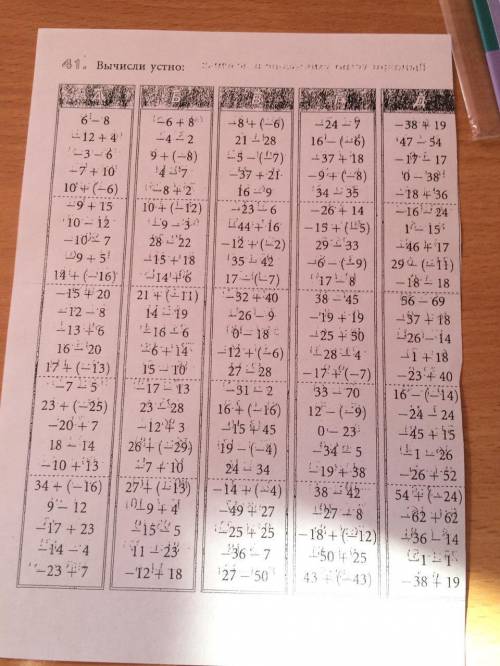 41. Вычисли устно:
А
6 − 8
−12 + 4
−3 − 6
−7 + 10
10 + (−6)
−9 + 15
10 − 12
−10 − 7
−9 + 5
14 + (−16)
−15 + 20
−12 − 8
−13 + 6
16 − 20
17 + (−13)
−7 − 5
23 + (−25)
−20 + 7
18 − 14
−10 + 13
34 + (−16)
9 − 12
−17 + 23
−14 − 4
−23 + 7
Б
−6 + 8
−4 − 2
9 + (−8)
4 − 7
−8 + 2
10 + (−12)
−9 − 3
28 − 22
−15 + 18
−14 + 6
21 + (−11)
14 − 19
−16 − 6
−6 + 14
15 − 10
−17 − 13
23 − 28
−12 + 3
26 + (−29)
−7 + 10
27 + (−13)
−9 + 4
−15 − 5
11 − 23
−12 + 18
В
−8 + (−6)
21 − 28
−5 − (−7)
−37 + 21
16 − 9
−23 − 6
−44 + 16
−12 + (−2)
35 − 42
17 − (−7)
−32 + 40
−26 − 9
0 − 18
−12 + (−6)
27 − 28
−31 − 2
16 + (−16)
−15 + 45
19 − (−4)
24 − 34
−14 + (−4)
−49 + 27
−25 + 25
−36 − 7
27 − 50
−24 − 7
16 − (−6)
−37 + 18
−9 + (−8)
34 − 35
−26 + 14
−15 + (−5)
29 − 33
−6 − (−9)
−17 − 8
38 − 45
−19 + 19
−25 + 50
−28 − 4
−17 + (−7)
33 − 70
12 − (−9)
0 − 23
−34 − 5
−19 + 38
38 − 42
−27 − 8
−18 + (−12)
−50 + 25
43 + (−43)
Д
−38 + 19
47 − 54
−17 − 17
0 − 38
−18 + 36
−16 − 24
1 − 15
−46 + 17
29 − (−11)
−18 − 18
56 − 69
−37 + 18
−26 − 14
−1 + 18
−23 + 40
16 − (−14)
−24 − 24
−45 + 15
−1 − 26
−26 + 52
54 + (−24)
−62 + 62
−36 − 14
−1 − 1
−38 + 19